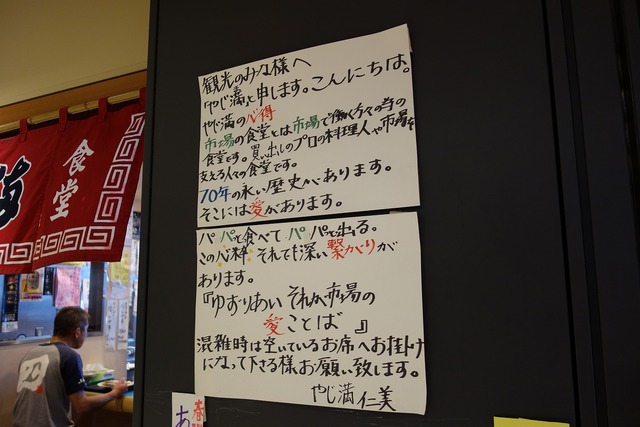 観光のみな様へ
「やじ満」と申します。こんにちは。
やじ満の心得
市場の食堂とは市場で働く方々の為の
食堂です。買い出しのプロの料理人や市場を
支える人々の食堂です。
70年の永い歴史があります。
そこには愛があります。
パパッと食べてパパッと出る。
この心粋 それでも深い繋がりが
あります。
『ゆずりあい それが市場の
愛ことば 』
混雑時は空いているお席へお掛け
になって下さる様お願い致します。
やじ満 仁美
食堂
あ